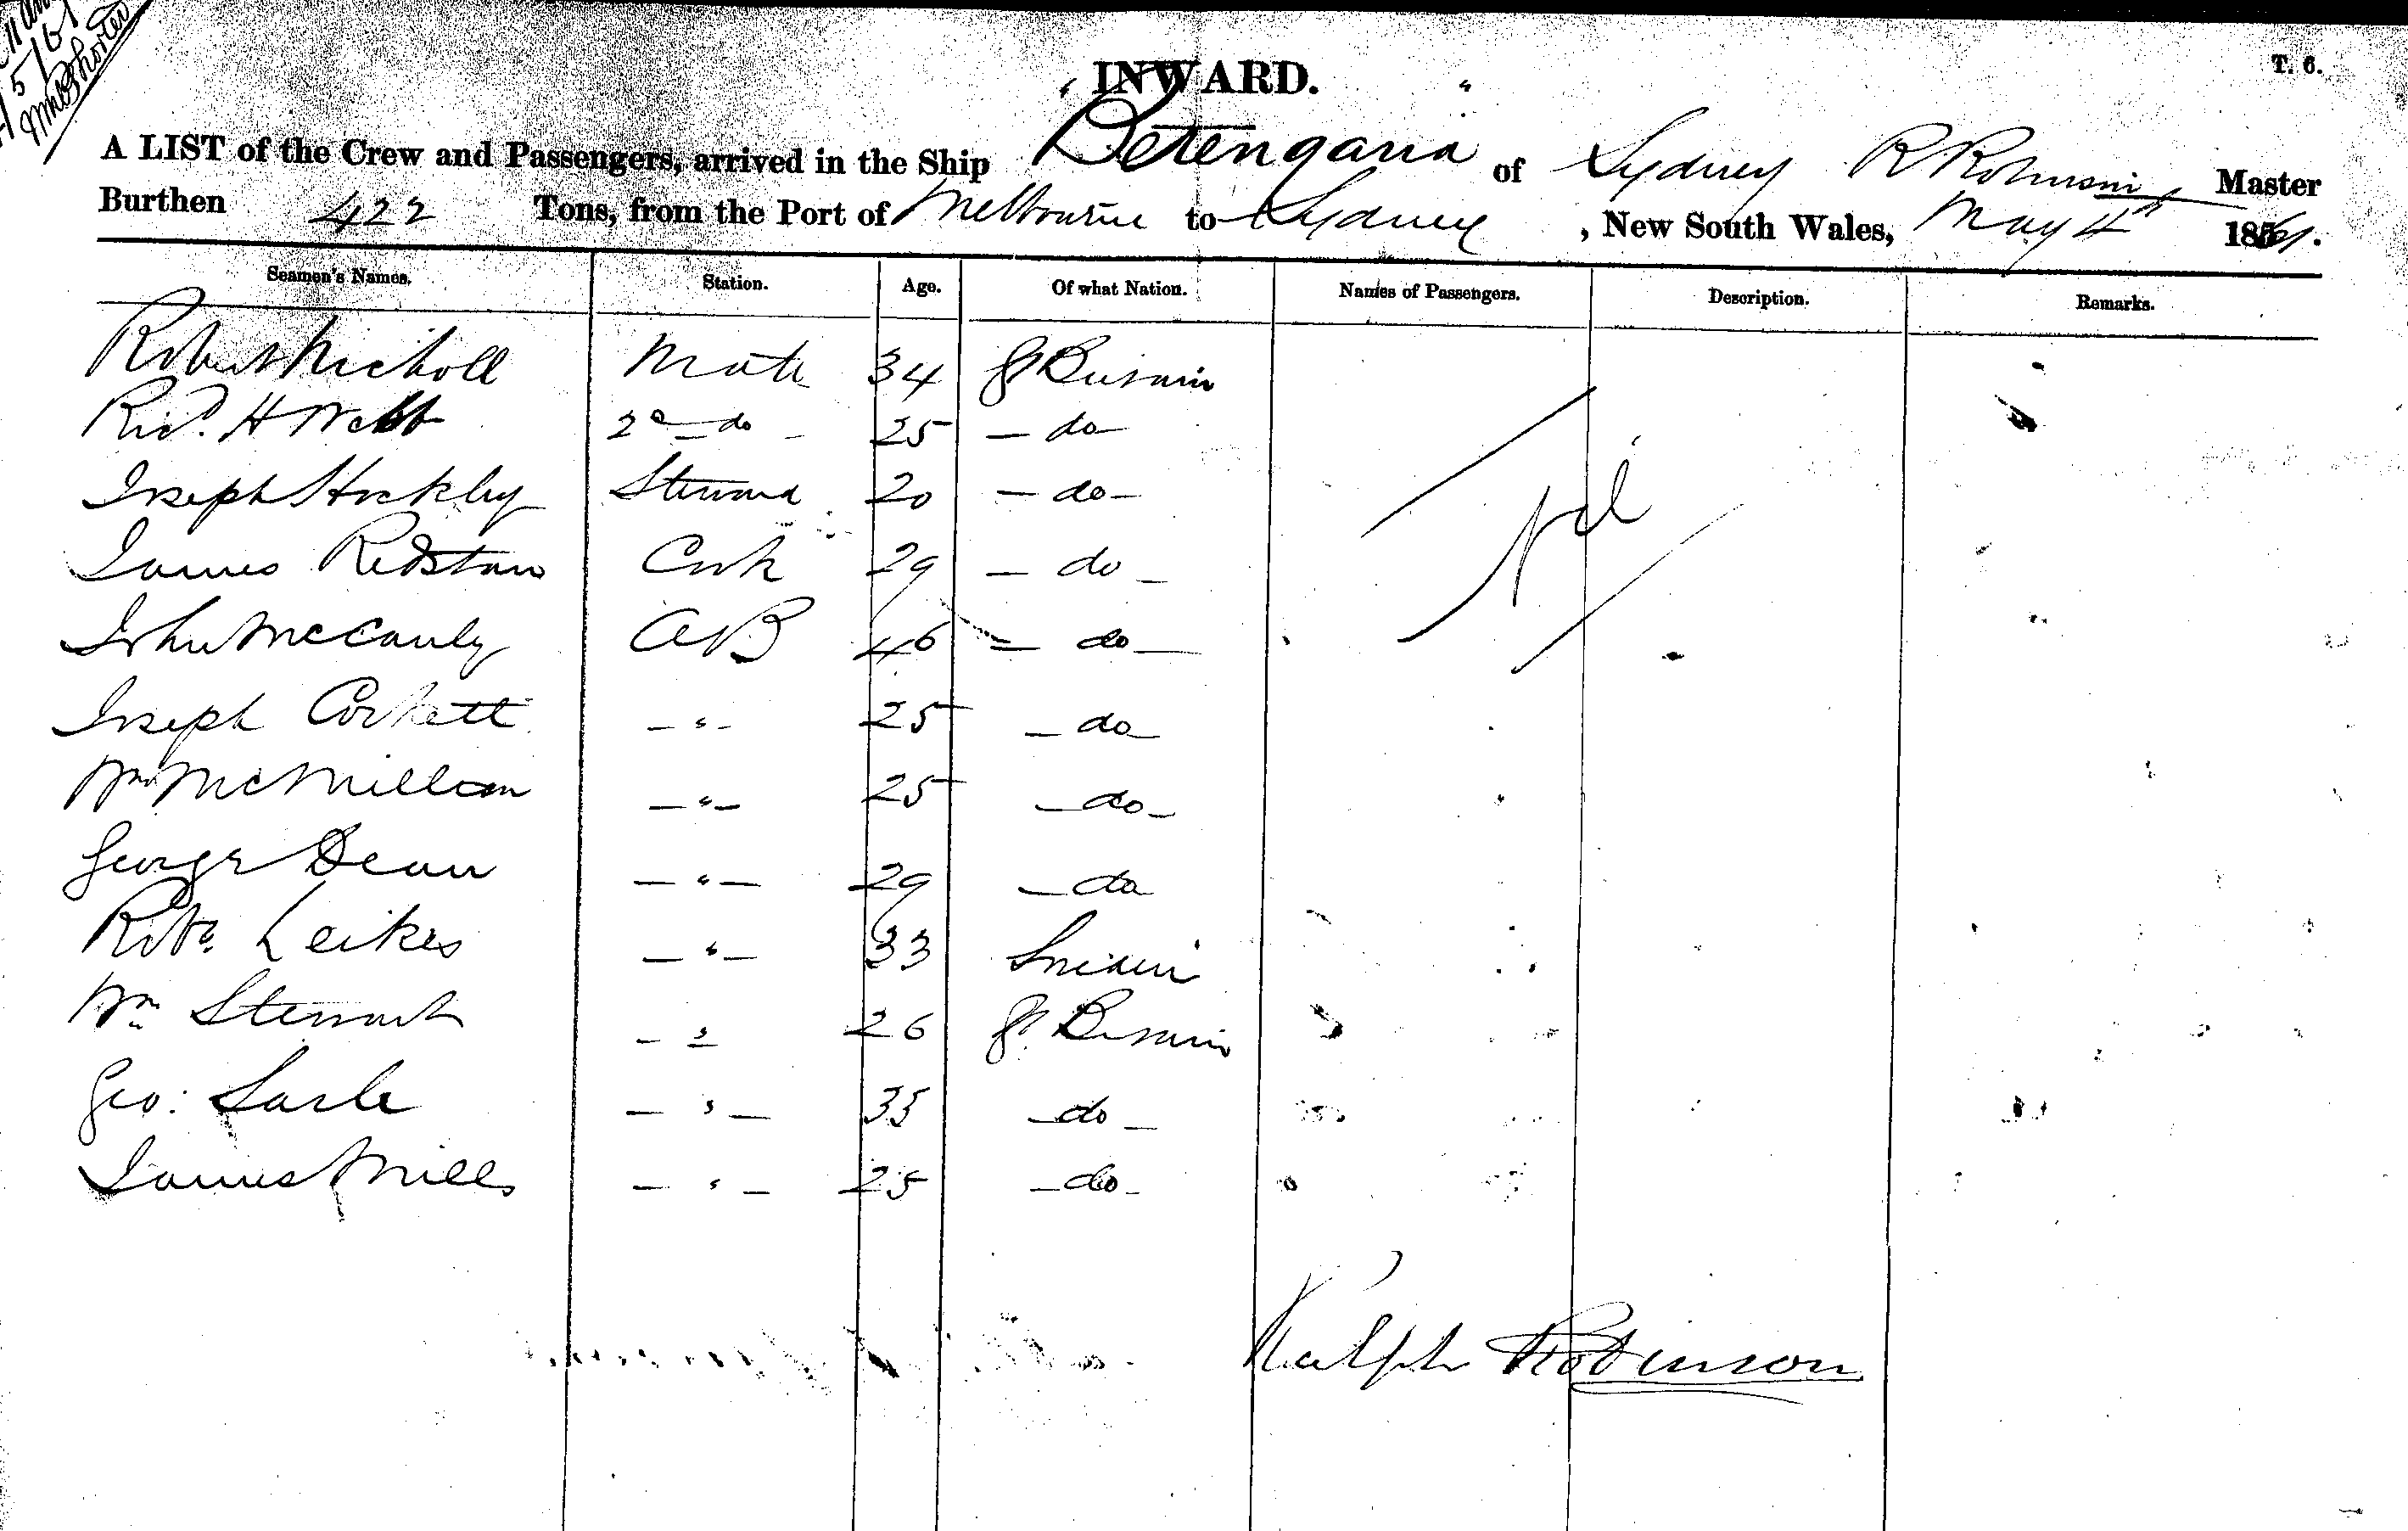 T. 6.
INWARD.
A LIST of the Crew and Passengers, arrived in the Ship "Berengaria" of Sydney R Robinson Master
Burthen 422 Tons, from the Port of Melbourne to Sydney, New South Wales, May 4th 1861.
Seamen's Names. Station. Age. Of what Nation. Names of Passengers. Description. Remarks.
Robert Nicholl Mate 34 Gt Britain
Ricd. H Webb 2d do - 25 - do
Joseph Hockley Steward 20 - do - Nil
James Redstan Cook 29 - do -
John McCauly AB 46 - do -
Joseph Corkett - " - 25 - do -
Wm McMillan - " - 25 - do -
George Dean - " - 29 - do
Robt. Leikes - " - 33
Wm Stewart - " 26 Gt Britain
Geo: Sarle - " - 35 - do -
James Mills - " - 25 - do -
Ralph Robinson